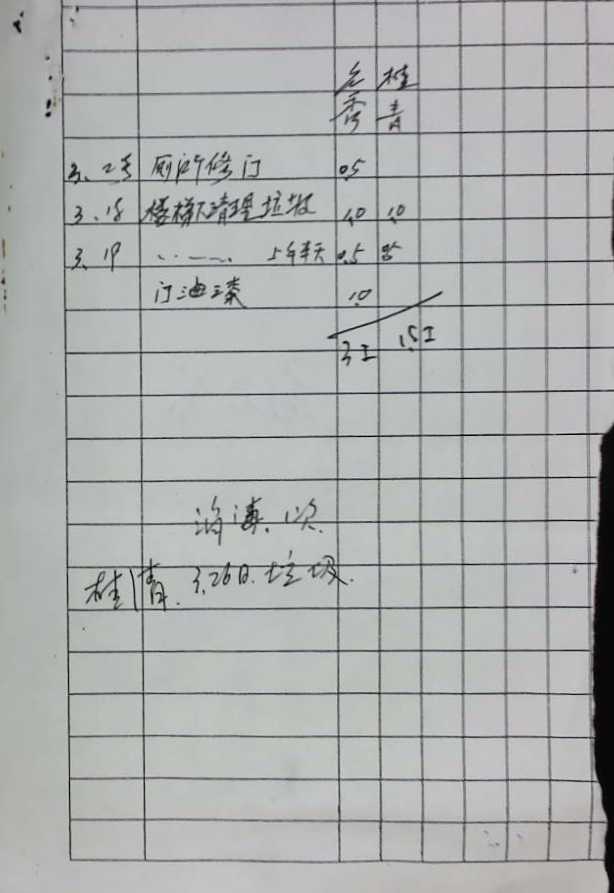 桂青
3. 厕所修门 0.5
3.18 楼梯下清理垃圾 1.0 1.0
3.19 ……… 上午半天 0.5 0.5
门油漆 1.0
3工 1.5工
消毒.
桂青. 3.26日. 垃圾.